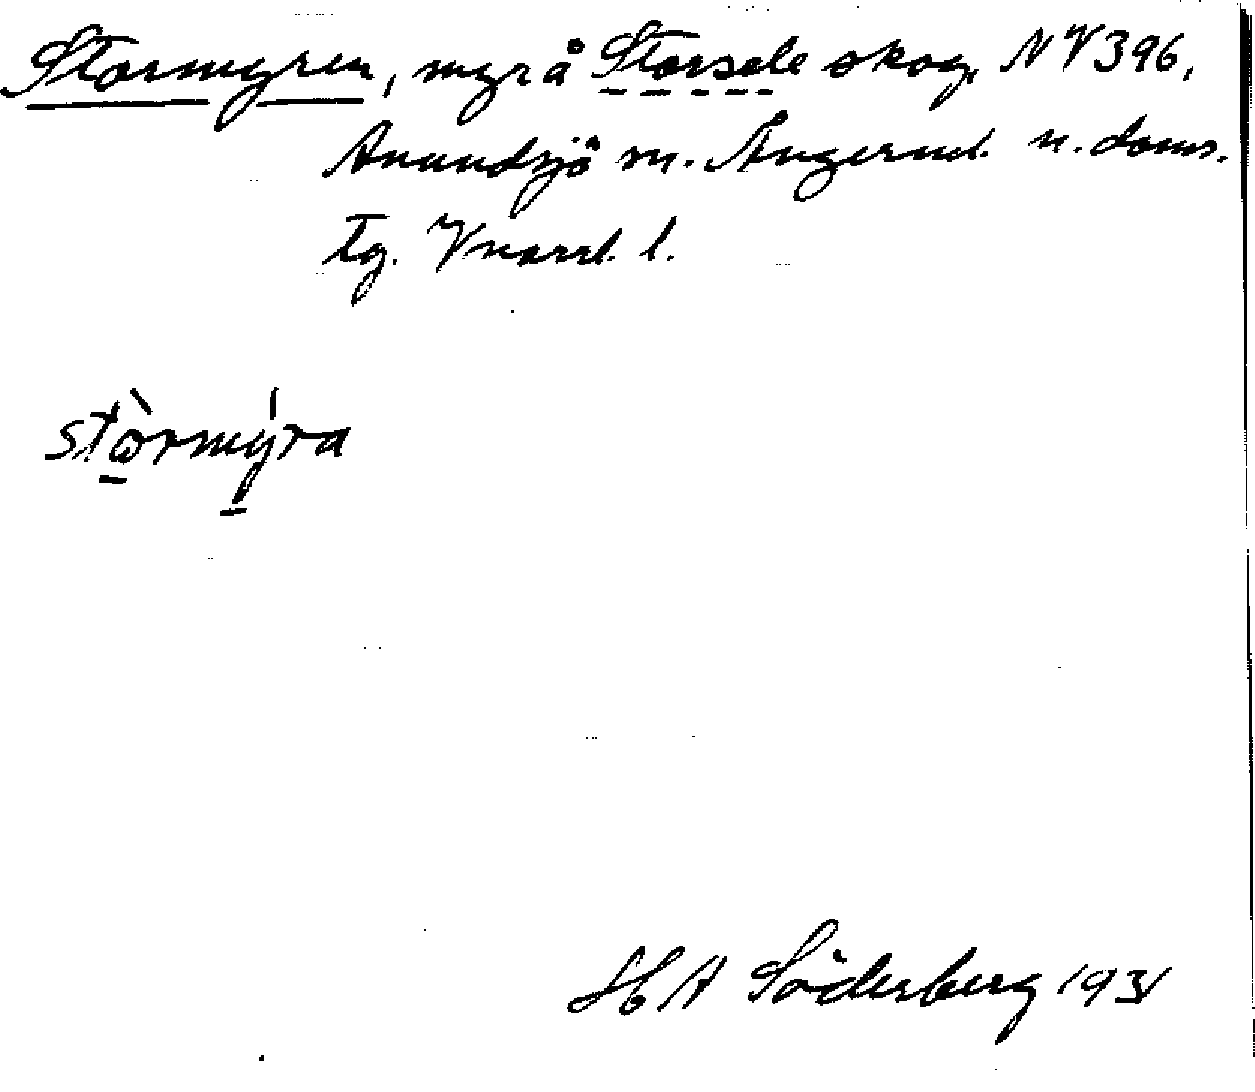 Stormyren, myr å Storsele skog, NV396,
Anundsjö sn. Ångerml. n. doms.
tg. Vnorrl. l.
stòrmýra
HA Söderberg 1931